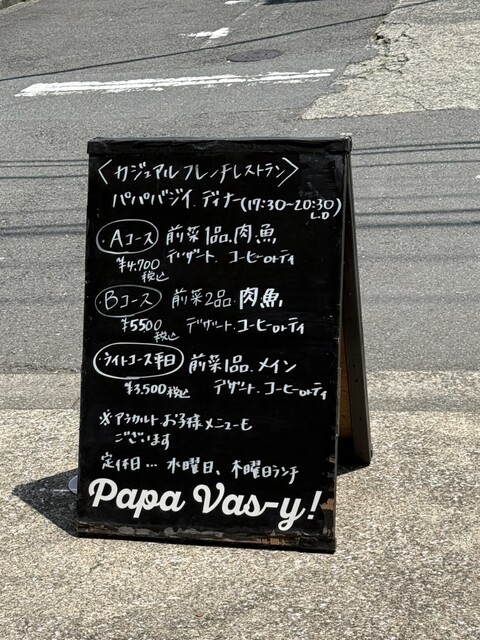 〈カジュアルフレンチレストラン〉
パパバジイ ディナー(17:30~20:30)
L.O
・Aコース 前菜1品.肉魚
¥4,700 デザート.コーヒーorティ
税込
・Bコース 前菜2品.肉魚
¥5500 デザート.コーヒーorティ
税込
・ライトコース平日 前菜1品.メイン
¥3,500税込 デザート.コーヒーorティ
※アラカルト.お子様メニューも
ございます
定休日… 水曜日、木曜日ランチ
Papa Vas-y!